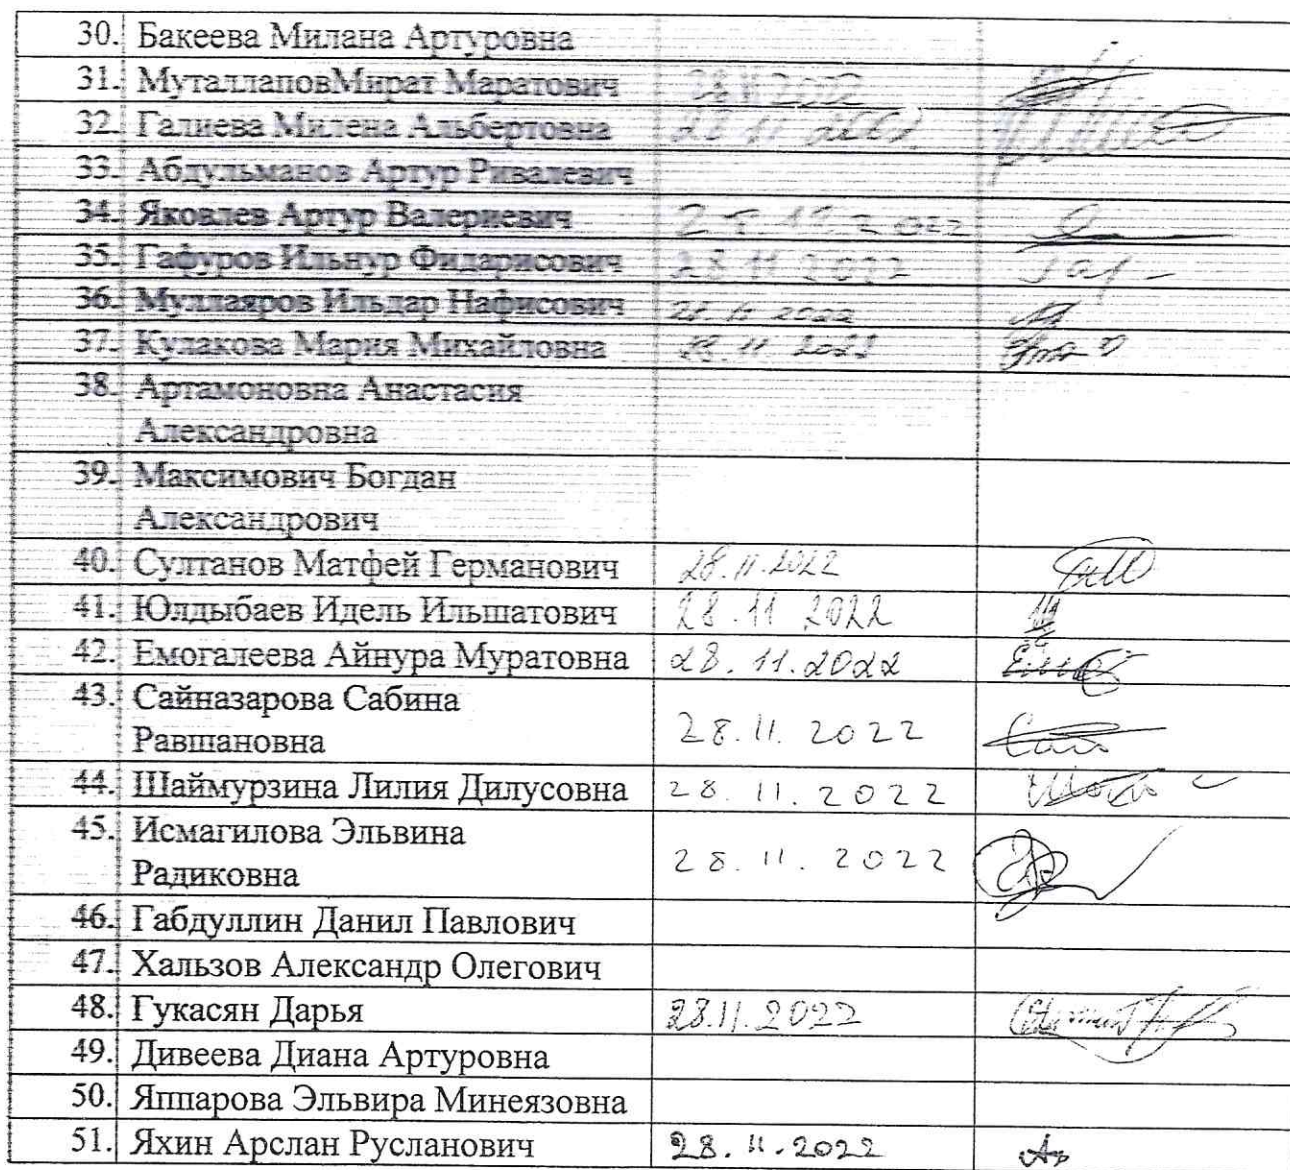 30. Бакеева Милана Артуровна
31. МуталлаповМират Маратович 28.11.2022
32. Галиева Милена Альбертовна 28.11.2022
33. Абдульманов Артур Ривалевич
34. Яковлев Артур Валериевич 28.11.2022
35. Гафуров Ильнур Фидарисович 28.11 2022
36. Муллаяров Ильдар Нафисович 28.11.2022
37. Кулакова Мария Михайловна 28.11.2022
38. Артамоновна Анастасия
Александровна
39. Максимович Богдан
Александрович
40. Султанов Матфей Германович 28.11.2022
41. Юлдыбаев Идель Ильшатович 28.11 2022
42. Емогалеева Айнура Муратовна 28.11.2022
43. Сайназарова Сабина
Равшановна 28.11.2022
44. Шаймурзина Лилия Дилусовна 28.11.2022
45. Исмагилова Эльвина
Радиковна 28.11.2022
46. Габдуллин Данил Павлович
47. Хальзов Александр Олегович
48. Гукасян Дарья 28.11.2022
49. Дивеева Диана Артуровна
50. Яппарова Эльвира Минеязовна
51. Яхин Арслан Русланович 28.11.2022